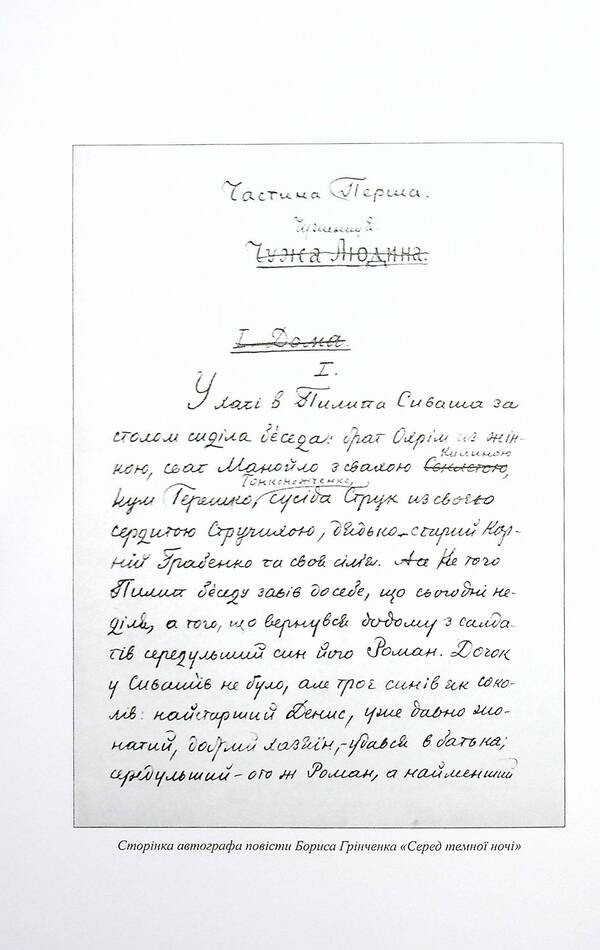 Частина Перша.
Чужениця.
Чужа Людина.
I. Дома.
I.
У хаті в Пилипа Сиваша за
столом сиділа бесіда: брат Охрім із жін-
Килиною
кою, сват Манойло з свахою
Тонконоженко,
кум Терешко, сусіда Струк из своєю
сердитою Стручихою, дядько-старий Кор-
ній Грабенко та своя сімья. Але не того
Пилип бесіду завів до себе, що сьогодні не-
діля, а того, що вернувся додому з салда-
тів середульший син його Роман. Дочок
у Сивашів не було, але троє синів як соко-
лів: найстарший Денис, уже давно жо-
натий, добрий хазяїн,-удався в батька;
середульший - ото ж Роман, а найменший
Сторінка автографа повісти Бориса Грінченка «Серед темної ночі»